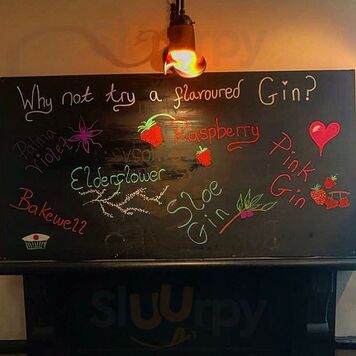 Why not try a flavoured Gin?
Palma
Violet
Raspberry
Elderflower
Pink
Gin
Sloe
Gin
Bakewell
Sluurpy